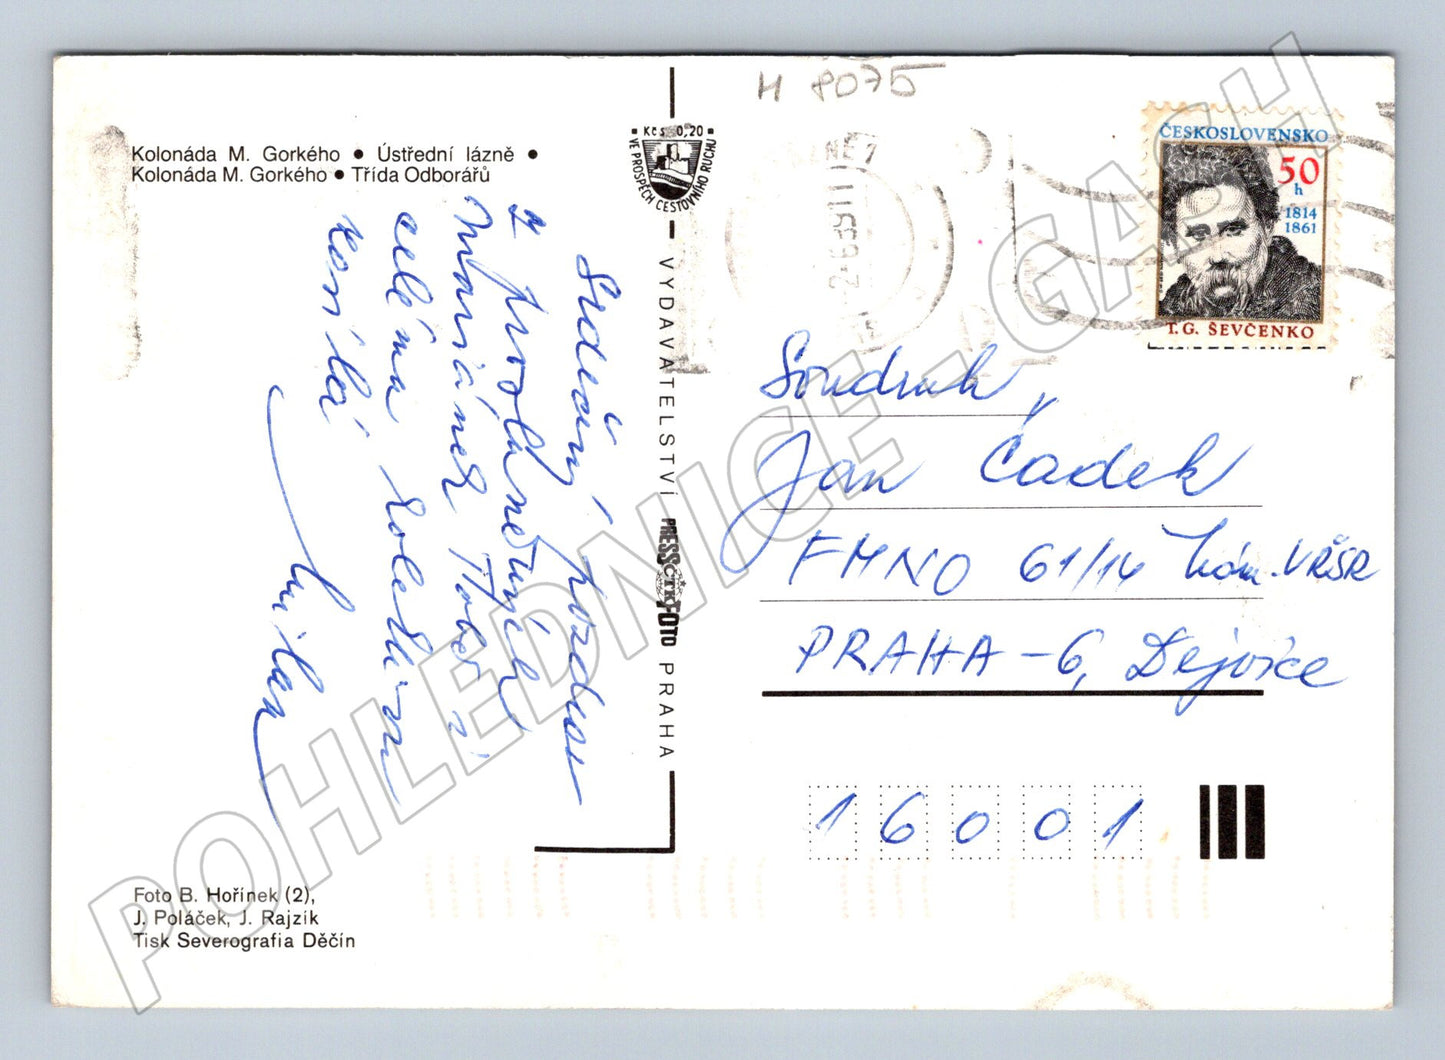 H 8075
Kolonáda M. Gorkého • Ústřední lázně •
Kolonáda M. Gorkého • Třída Odborářů
Kčs 0,20
VE PROSPĚCH CESTOVNÍHO RUCHU
ČESKOSLOVENSKO
50
h
1814
1861
T. G. ŠEVČENKO
Srdečný pozdrav
z
Mariánek
celému
Milan
VYDAVATELSTVÍ PRESSFOTO PRAHA
ČTK
Soudruh
Jan Čadek
FMNO 61/14 nám. VŘSR
PRAHA - 6, Dejvice
16001
Foto B. Hořínek (2),
J. Poláček, J. Rajzík
Tisk Severografia Děčín
POHLEDNICE - GASH